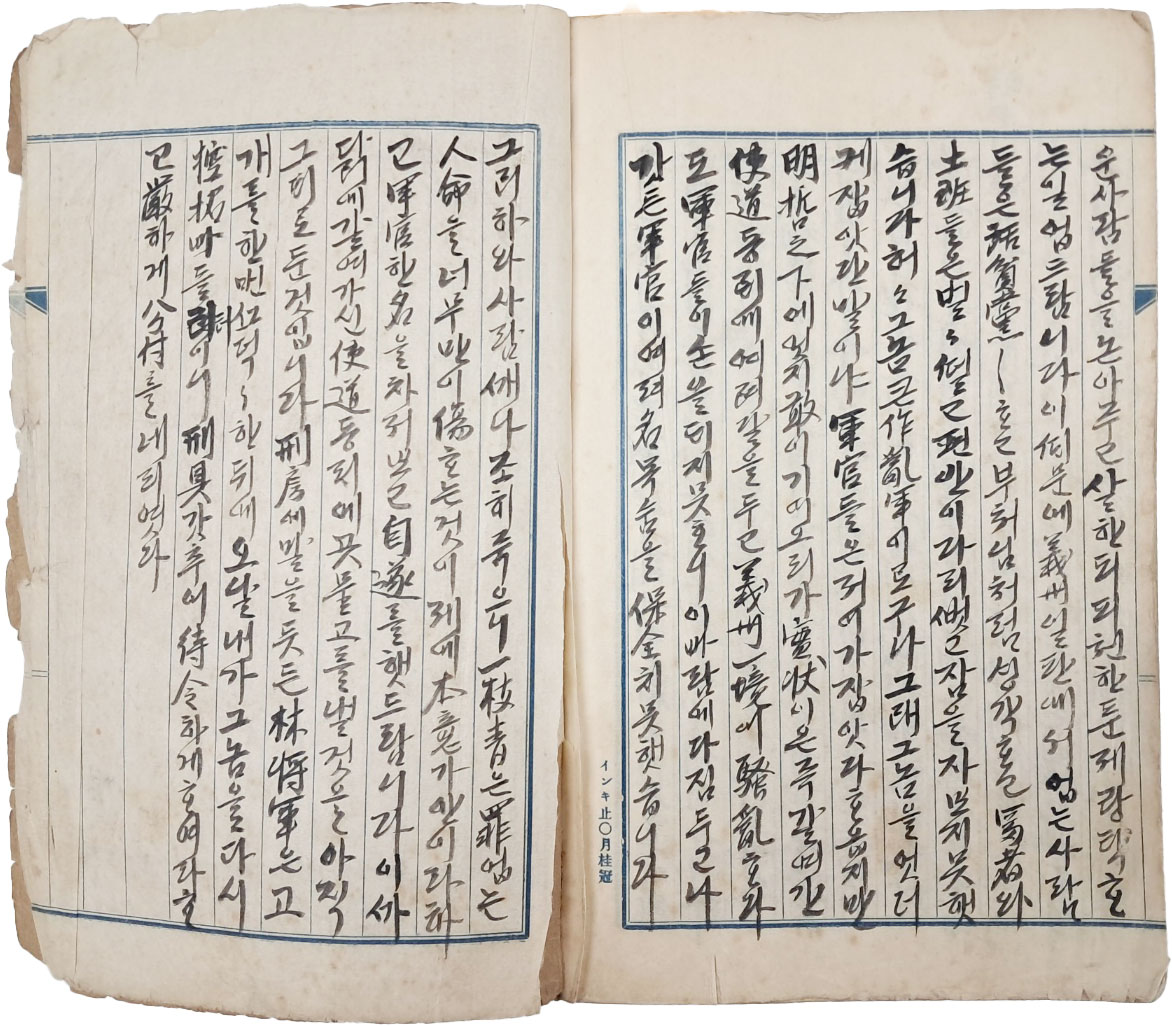 운사람들을 논아주고 살한되 피천한둔 제랑탁호
는일 업드람니다 이 때문에 義州일판에서 업는사람
들은 活貧黨〳〵호고 부처님처럼 성각호고 富者와
土班들은 벌〻떨고 편안이 다리뻣고 잠을 자보지 못햇
슴니다 허〻 그놈 큰 作亂軍이로구나 그래 그놈을 엇더
케 잡앗단 말이냐 軍官들은 저이가 잡앗다 호옵지만
明哲之下에 엇지 敢이 기이오릿가 實狀이온즉 갈여간
使道 등뢰에 여려갈을 두고 義州一境이 騷亂호과
도 軍官들이 손을 디지못호니 이 빠람에 다짐두고 나
갓든 軍官이 여려名 목숨을 保全치 못햇슴니다
インキ止〇月桂冠
그러하와 사람새나 조히 죽으니 一枝青은 罪업는
人命을 너무만이 傷호는것이 제에 本意가 안이다 하
고 軍官 한名을 차저보고 自遂를 햇드람니다 이 까
닭에 갈여가신 使道 등뢰에 곳 물고를 낼것을 아직
그뢰로 둔것입니다 刑房에 말을 듯든 林將軍은 고
개를 한번 끄덕〻한 뒤에 오날 내가 그놈을 다시
拷拓바들터이니 刑具 갓추어 待令하게 호여라 호
고 嚴하게 分付를 내리엿다